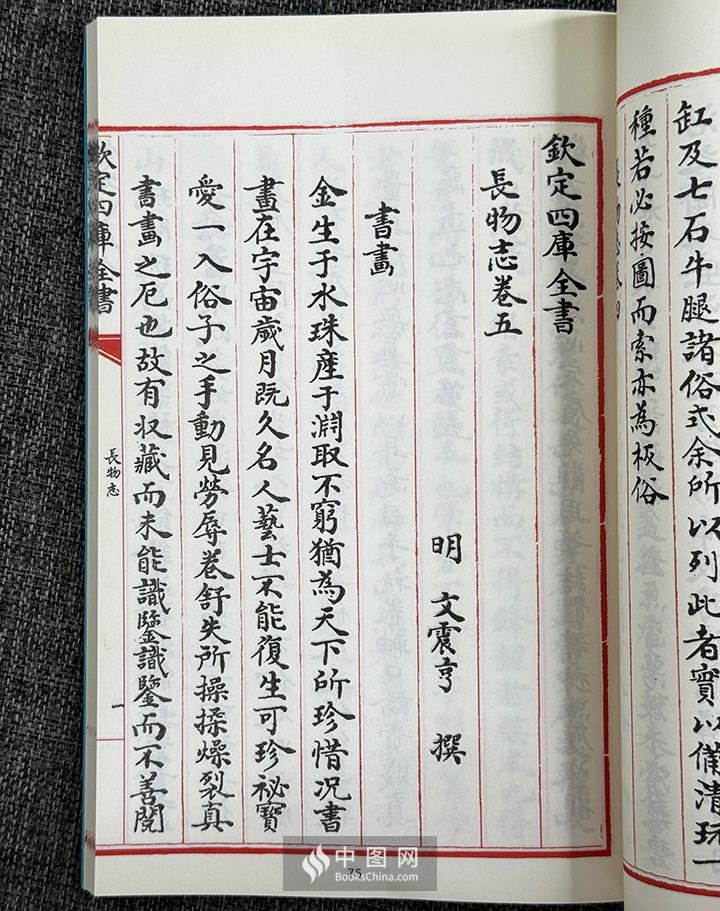 缸及七石牛腿諸俗式余所以列此者實以備清玩一
種若必按圖而索亦為板俗
長物志卷四
欽定四庫全書
長物志卷五
明 文震亨 撰
書畫
金生于水珠產于淵取不窮猶為天下所珍惜况書
畫在宇宙歲月既久名人藝士不能復生可珍祕寶
愛一入俗子之手動見勞辱卷舒失所操揉燥裂真
書畫之厄也故有収藏而未能識鑒識鑒而不善閱
欽定四庫全書
長物志
一
75
中图网
BooksChina.com